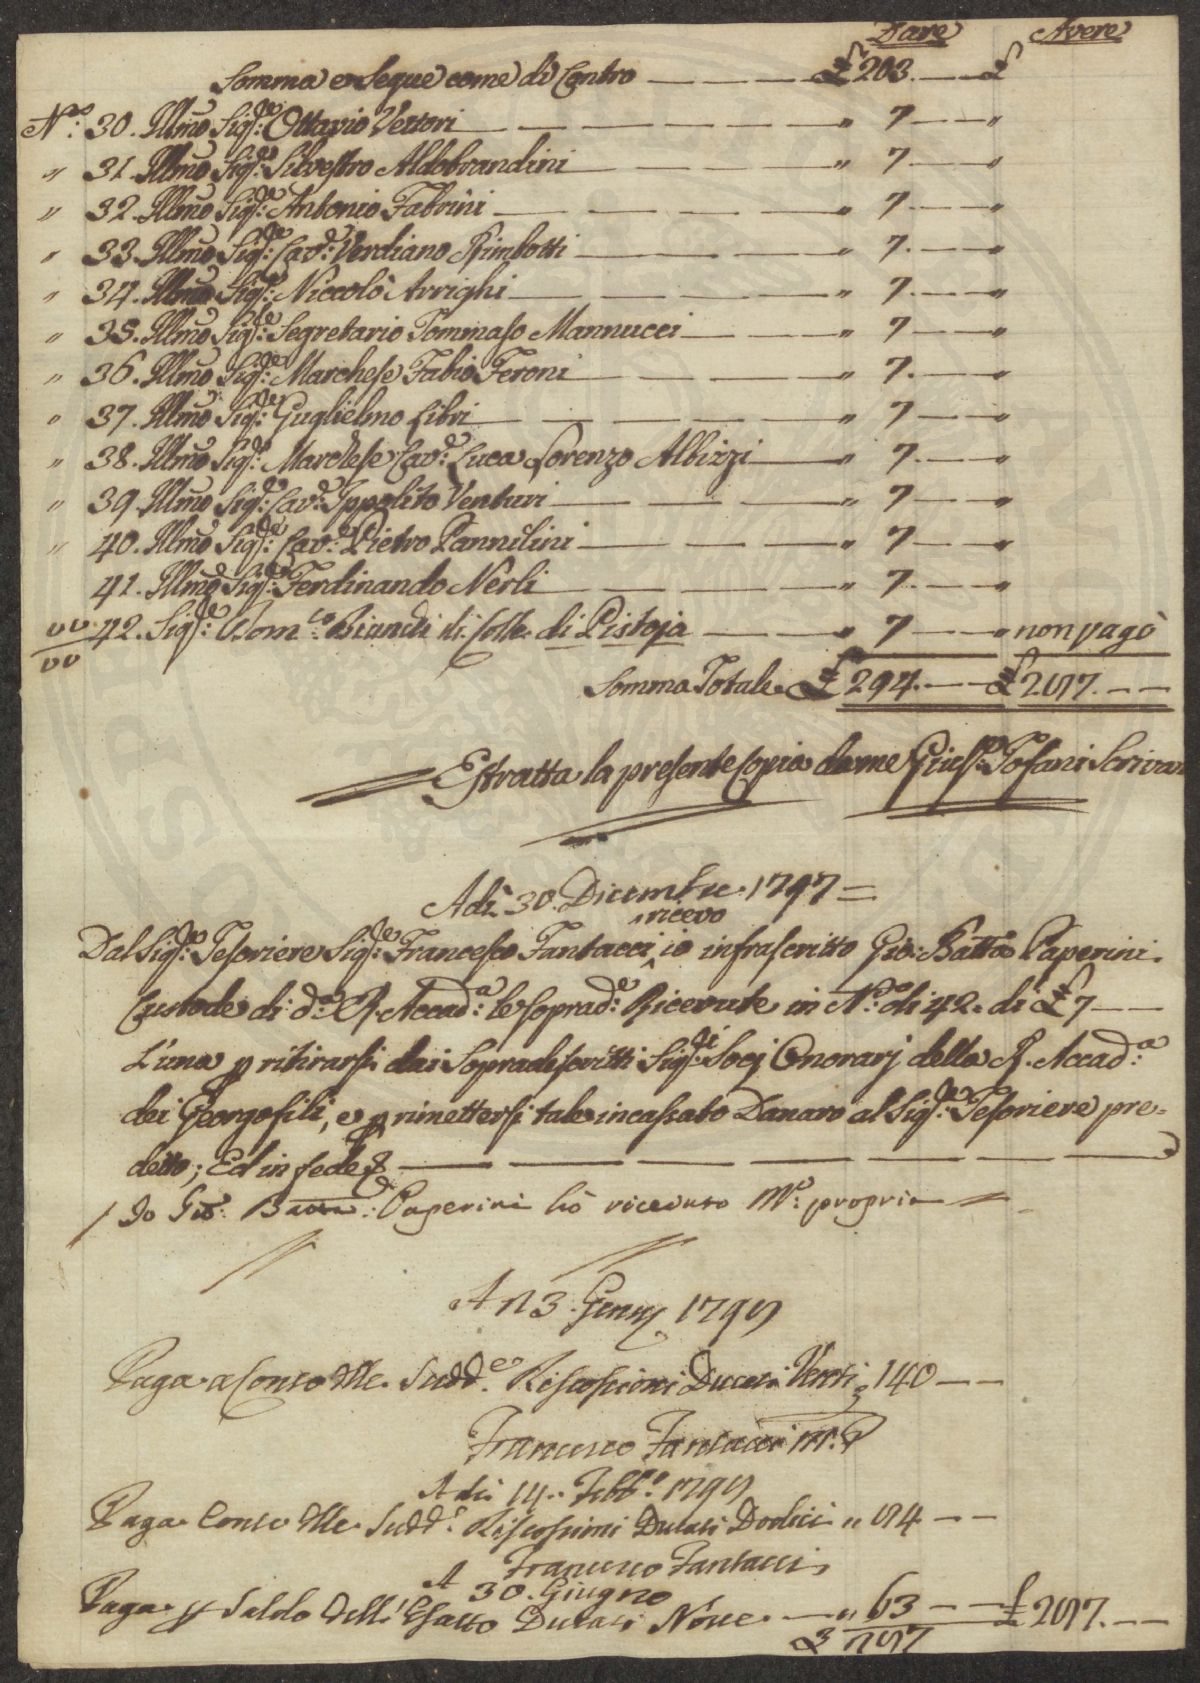 Dare Avere
Somma e segue come di Contro £ 203. £
N.° 30. Illmo Sig.re Ottavio Vettori " 7 "
" 31. Illmo Sig.re Silvestro Aldobrandini " 7 "
" 32. Illmo Sig.re Antonio Fabrini " 7 "
" 33. Illmo Sig.re Cav.re Verdiano Rimbotti " 7. "
" 34. Illmo Sig.re Niccolò Arrighi " 7. "
" 35. Illmo Sig.re Segretario Tommaso Mannucci " 7 "
" 36. Illmo Sig.re Marchese Fabio Feroni " 7. "
" 37. Illmo Sig.re Guglielmo Libri " 7 "
" 38. Illmo Sig.re Marchese Cav.re Luca Lorenzo Albizzi " 7. "
" 39. Illmo Sig.re Cav.re Ippolito Venturi " 7 "
" 40. Illmo Sig.re Cav.re Pietro Pannilini " 7 "
41. Illmo Sig.re Ferdinando Nerli " 7. "
42. Sig.re Dom.co Bianchi di Colle di Pistoja " 7 " non pagò
Somma Totale £ 294. £ 287.
Estratta la presente Copia da me Gius.e Tofani Scrivan
Adì 30. Dicembre 1797 =
ricevo
Dal Sig.re Tesoriere Sig.re Francesco Fantacci, io infrascritto Gio: Batta Paperini
Custode di d.a R. Accad.a le soprad.e Ricevute in N.° di 42. di £ 7
L'una p ritirarsi dai Sopradescritti Sig.ri Socj Onorarj della R. Accad.a
dei Georgofili, e p rimettersi tale incassato Danaro al Sig.re Tesoriere pre=
detto; Ed in fede
Io Gio: Batta: Paperini hò ricevuto M.o propria =
A 23. Genn 1798
Paga a Conto delle Sudd.e Riscossioni Ducati Venti " 140
Francesco Fantacci m. P
A di 14. Febb.o 1798
Paga Conto delle Sudd.e Riscossioni Ducati Dodici " 84
Francesco Fantacci
A 30. Giugno
Paga p Saldo dell' Esatto Ducati Nove " 63 £ 287.
£ 287